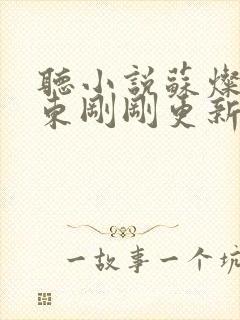 聽小說蘇燦
束剛剛更新
一故事一个坑